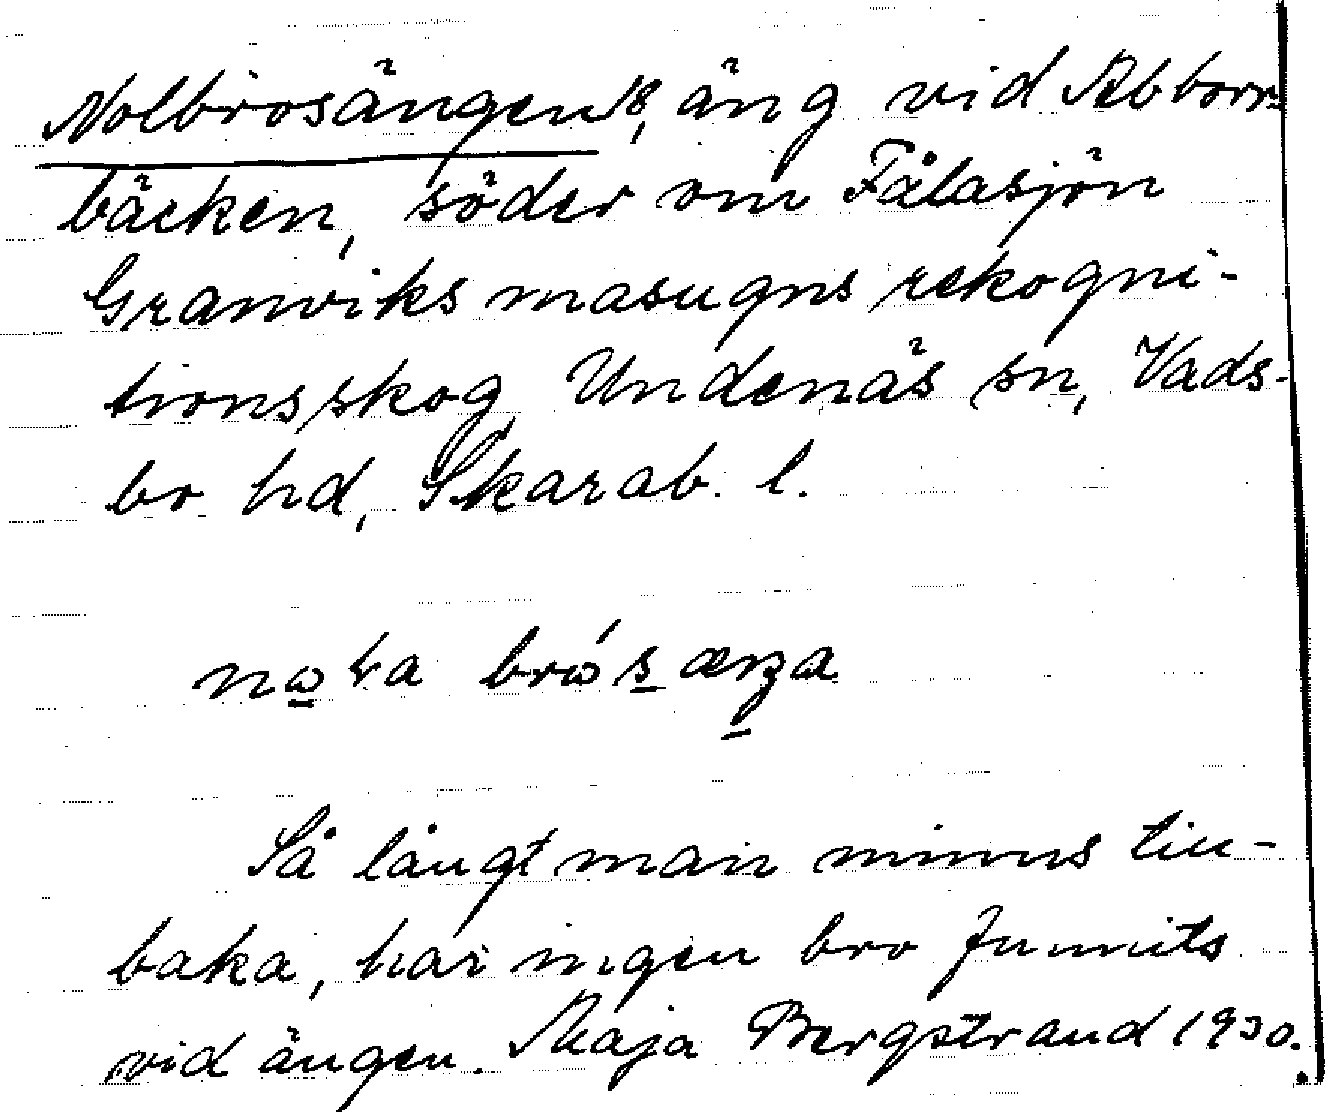 Nolbrosängen, äng vid Abborr-
bäcken, söder om Fålasjön
Granviks masugns rekogni-
tionsskog Undenäs sn, Vads-
bo hd, Skarab. l.
Så långt man minns till-
baka, har ingen bro funnits
vid ängen. Maja Bergstrand 1930.